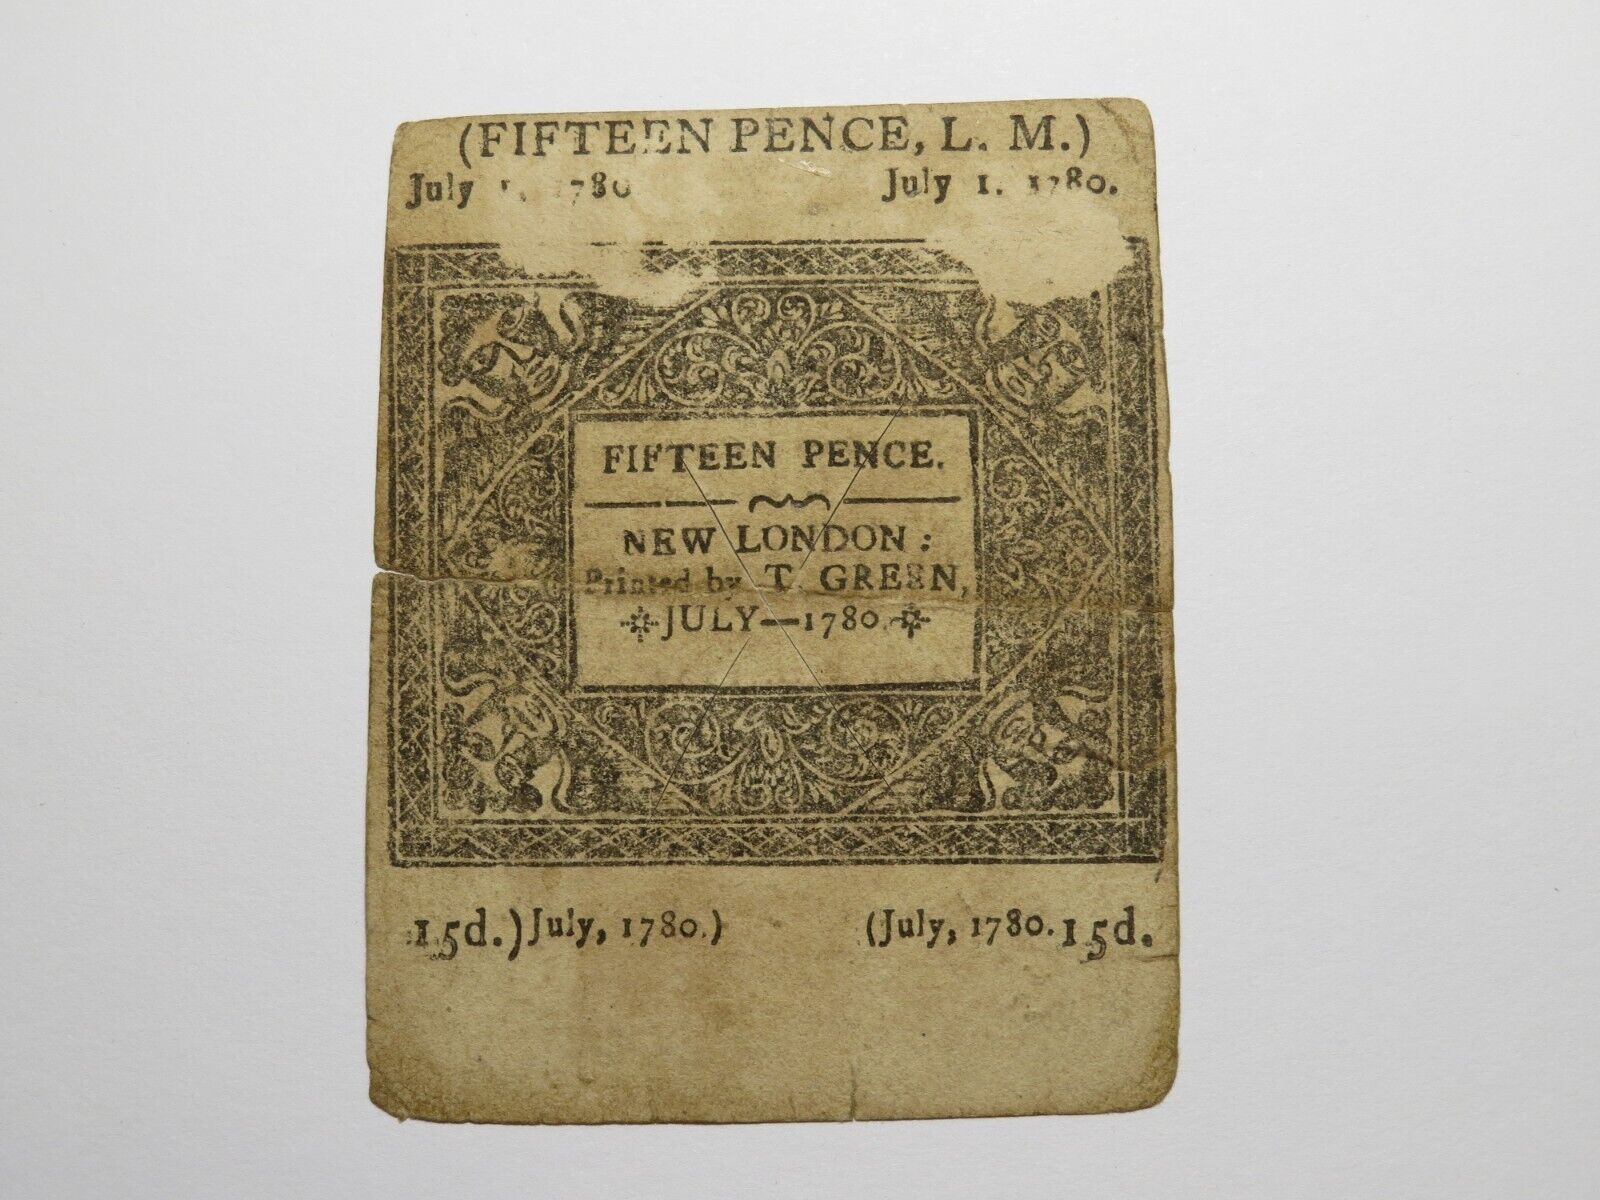 (FIFTEEN PENCE, L. M.)
July 1, 1780 July 1. 1780.
FIFTEEN PENCE.
NEW LONDON:
Printed by T. GREEN,
JULY—1780.
15d.) July, 1780.) (July, 1780. 15d.